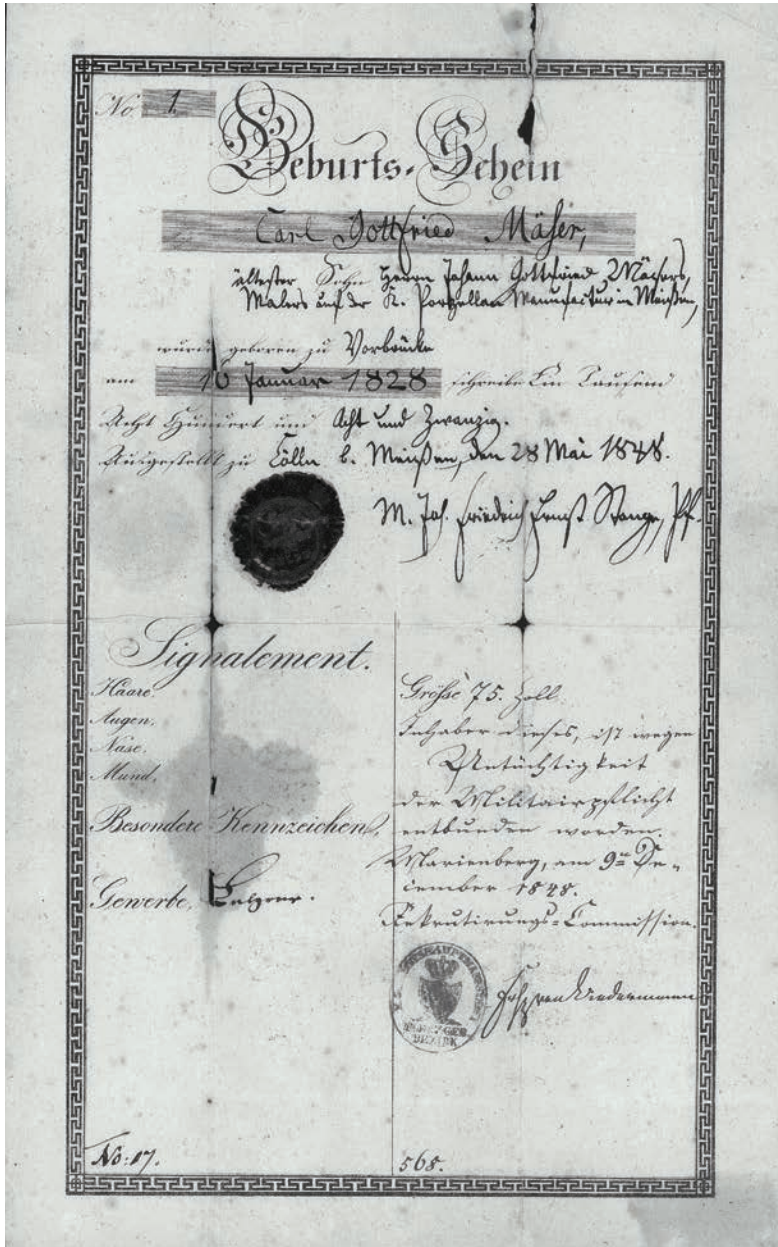 No. 1.
Geburts-Schein
Carl Gottfried Mäser,
ältester Sohn Herrn Johann Gottfried Mäsers,
Malers auf der K. Porzellan Manufactur in Meißen,
wurde geboren zu Vorbrücke
am 16 Januar 1828 schreibe Ein Tausend
Acht Hundert und Acht und Zwanzig.
Ausgestellt zu Cölln b. Meißen, den 28 Mai 1848.
M. Joh. Friedrich Ernst Stange, Pf.
Signalement.
Haare.
Augen.
Nase.
Mund.
Besondere Kennzeichen,
Gewerbe,
Grösse 75. Zoll.
Inhaber dieses, ist wegen
Untüchtigkeit
der Militairpflicht
entbunden worden.
Marienberg, am 9ten De-
cember 1848.
Rekrutirungs-Commission.
BEZIRK
No: 17.
568.